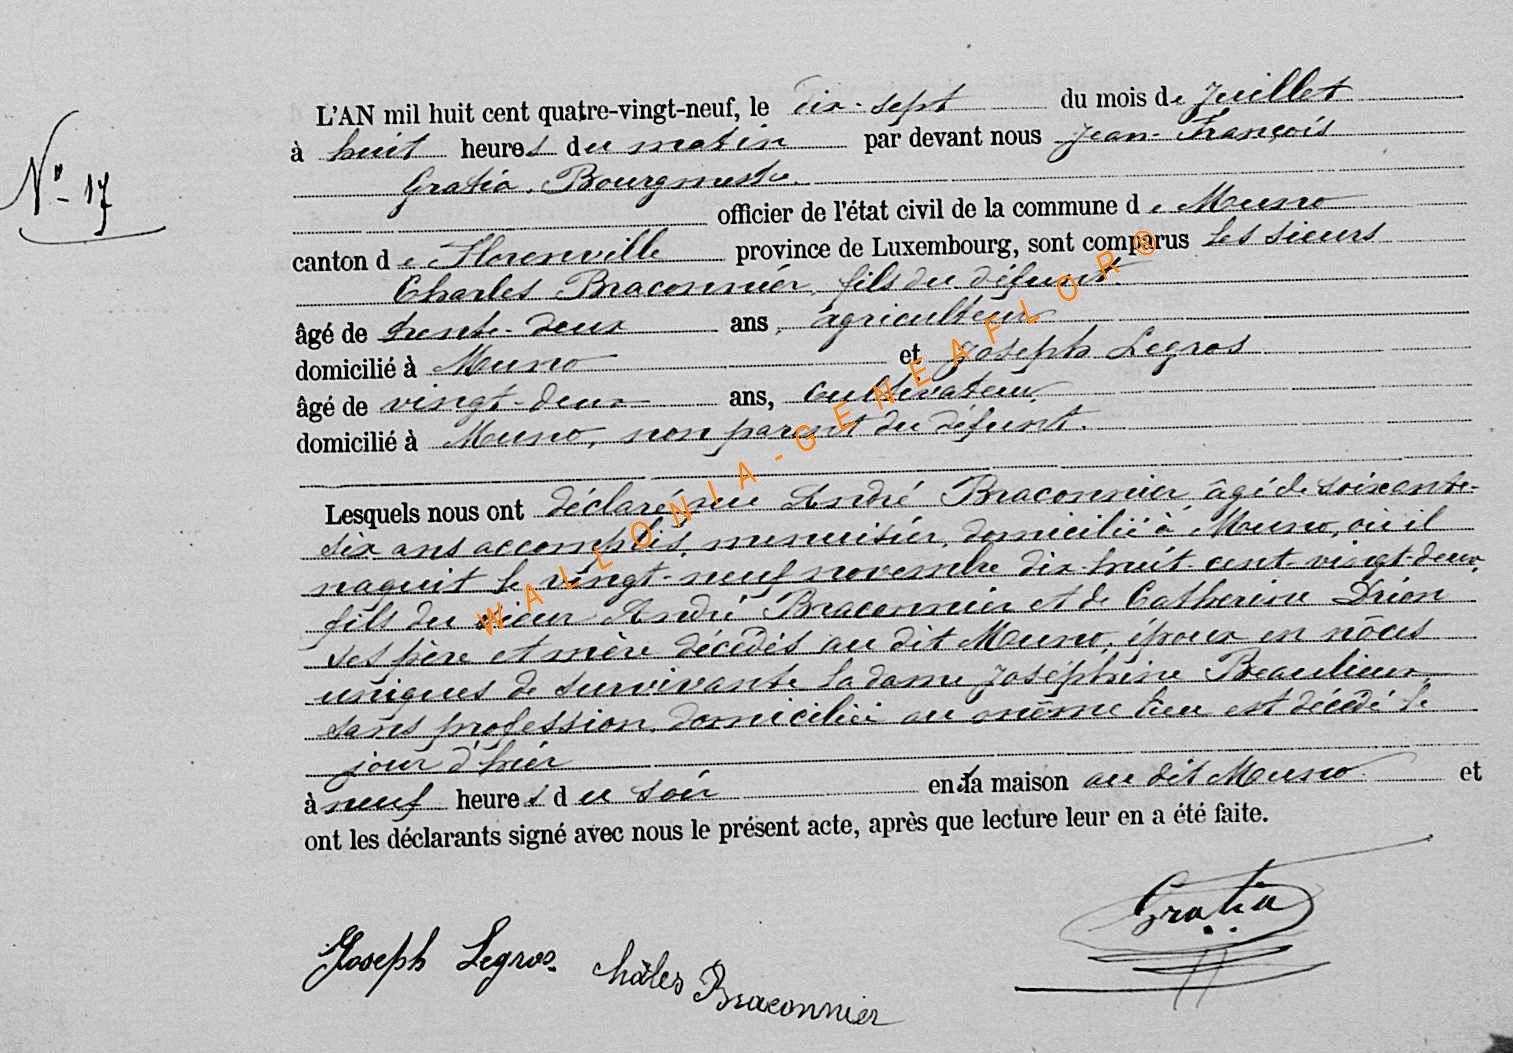 N° 17
L'AN mil huit cent quatre-vingt-neuf, le dix-sept du mois de Juillet
à huit heures du matin par devant nous Jean-François
Gratia, Bourgmestre.
officier de l'état civil de la commune de Muno
canton de Florenville province de Luxembourg, sont comparus les sieurs
Charles Braconnier, fils du défunt.
âgé de trente-deux ans, agriculteur
domicilié à Muno et Joseph Legros
âgé de vingt-deux ans, cultivateur,
domicilié à Muno, non parent du défunt.
Lesquels nous ont déclaré que André Braconnier âgé de soixante-
six ans accomplis, menuisier, domicilié à Muno, où il
naquit le vingt-neuf novembre dix-huit-cent-vingt-deux,
fils du sieur André Braconnier et de Catherine Drion
ses père et mère décédés au dit Muno, époux en nôces
uniques de survivante la dame Joséphine Beaulieux,
sans profession, domiciliée au même lieu est décédé le
jour d'hier
à neuf heures du soir en la maison au dit Muno. et
ont les déclarants signé avec nous le présent acte, après que lecture leur en a été faite.
Gratia
Joseph Legros. Châles Braconnier
WALLONIA-GENEAFLOR®